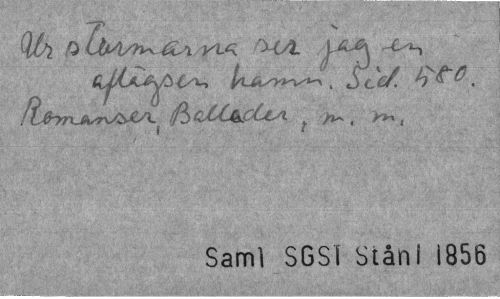 Ur stormarna ser jag en
aflägsen hamn. Sid. 580.
Romanser, Ballader, m. m.
Saml SGS1 Stånl 1856